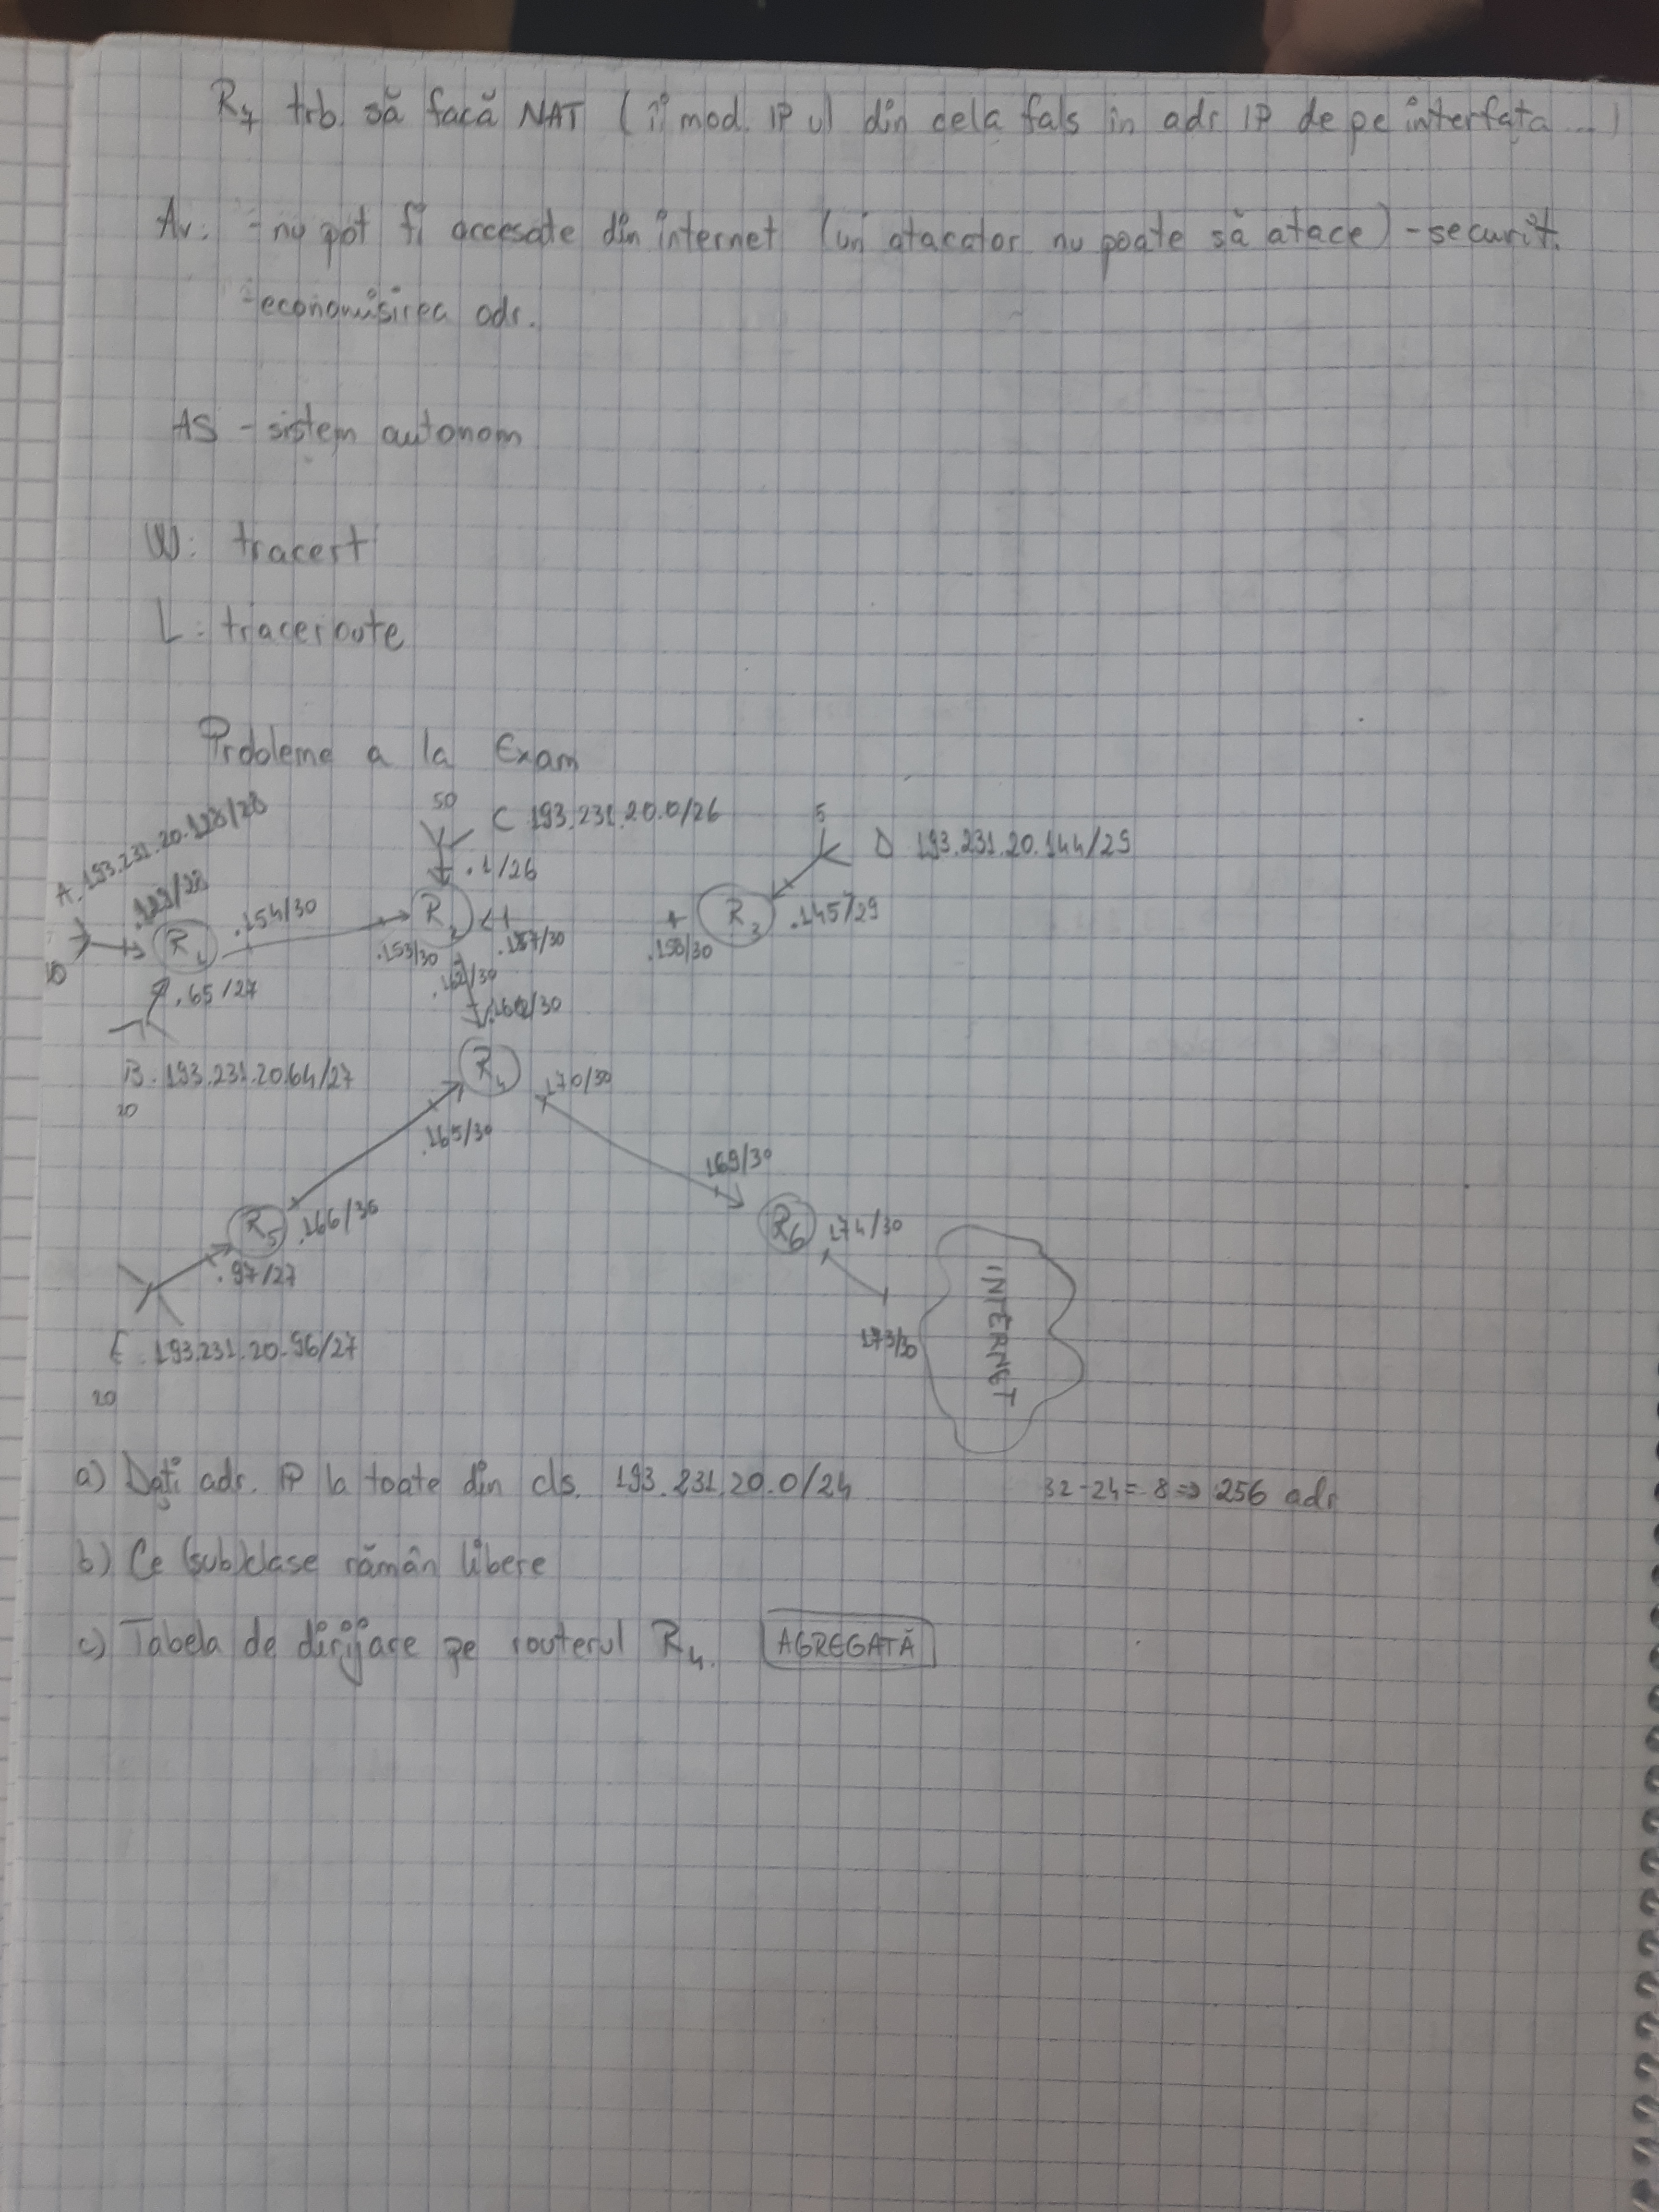 R7 trb. să facă NAT (îi mod. IP ul din cela fals în adr IP de pe interfața ...)
Av: - nu pot fi accesate din internet (un atacator nu poate să atace) - securit.
- economisirea adr.
AS - sistem autonom
W: tracert
L: traceroute
Probleme a la Exam
50
C 193.231.20.0/26
5
D 193.231.20.144/29
A. 193.231.20.128/28
.1/26
.129/28
.154/30
R1
R2
R3
.145/29
10
.153/30
.157/30
.158/30
.65/27
B. 193.231.20.64/27
20
R4
.170/30
.165/30
.169/30
R5
.166/30
R6
.174/30
.97/27
INTERNET
.173/30
E. 193.231.20.96/27
20
a) Dați adr. IP la toate din cls. 193.231.20.0/24
32-24=8=> 256 adr
b) Ce (sub)clase rămân libere
c) Tabela de dirijare pe routerul R4. AGREGATĂ